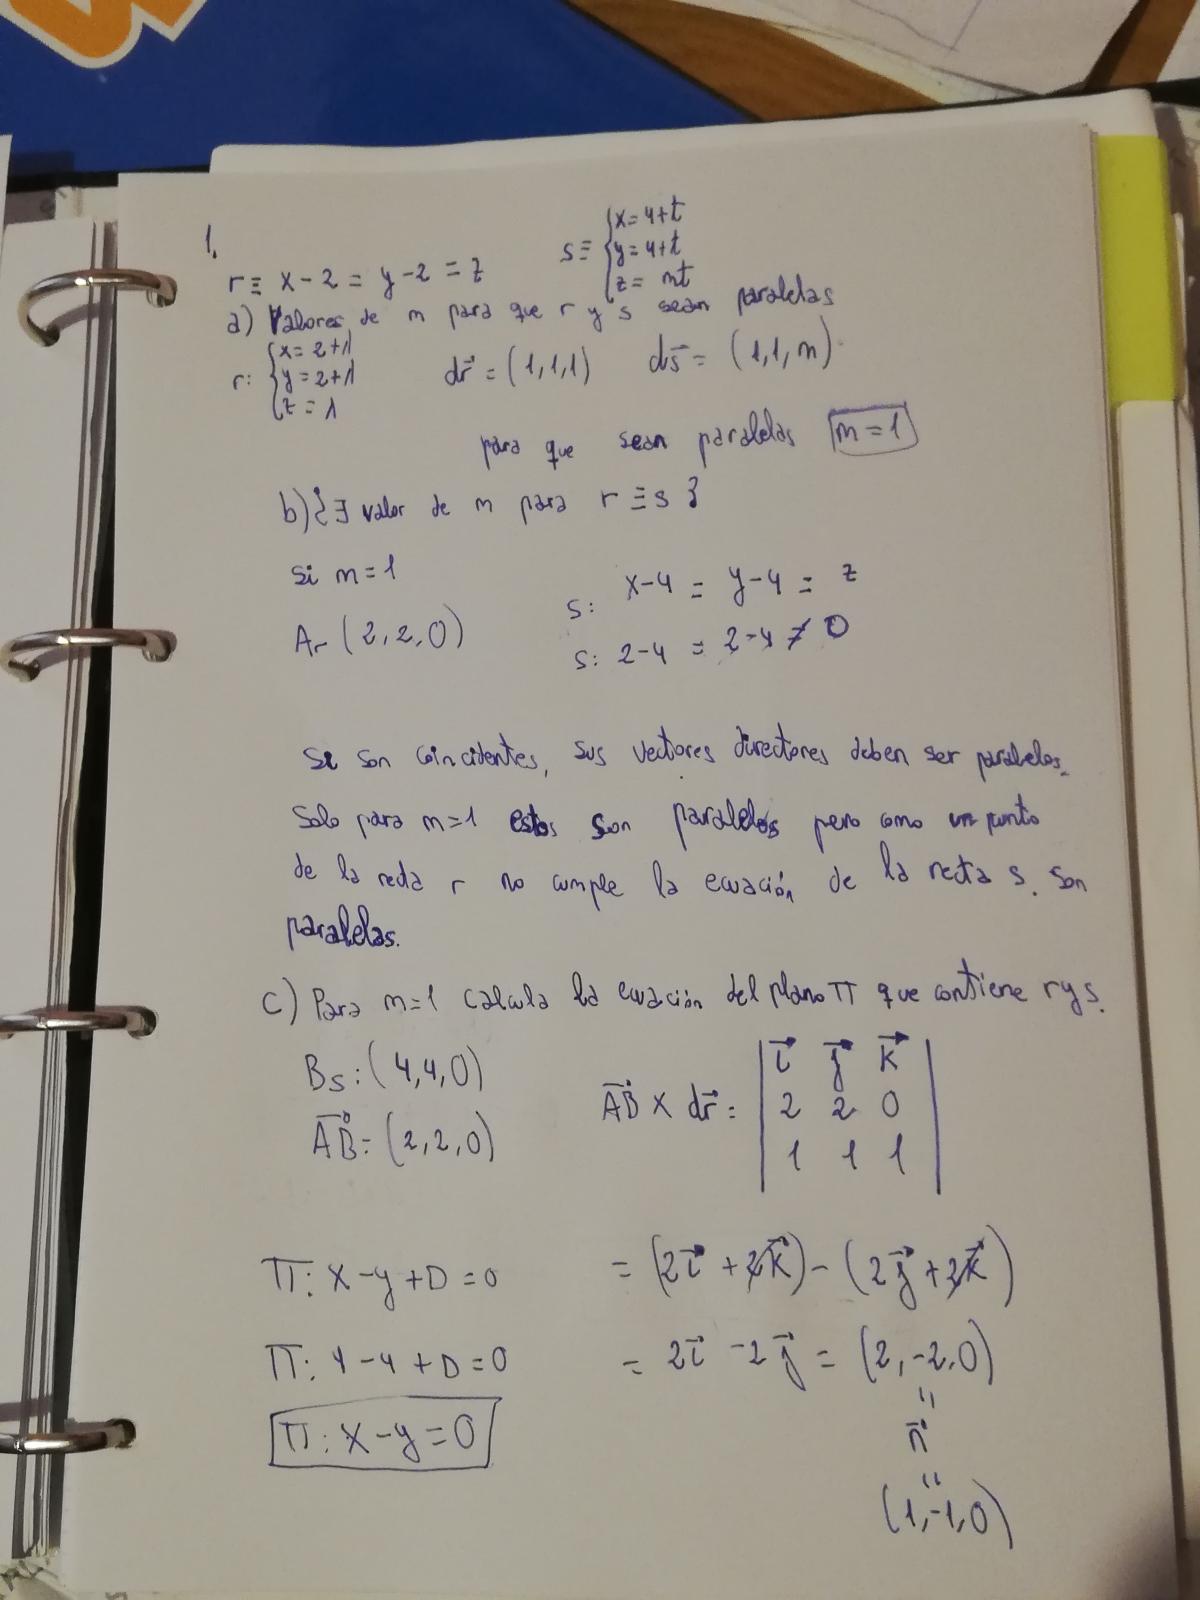 1.
r ≡ x-2 = y-2 = z    s ≡ { x=4+t
y=4+t
z= mt
a) Valores de m para que r y s sean paralelas
r: { x=2+λ
y=2+λ
z=λ
dr⃗ = (1,1,1)    ds⃗ = (1,1,m)
para que sean paralelas m=1
b) ¿∃ valor de m para r ≡ s?
si m=1
Ar (2,2,0)    s: x-4 = y-4 = z
s: 2-4 = 2-4 ≠ 0
Si son coincidentes, sus vectores directores deben ser paralelos.
Solo para m=1 estos son paralelos pero como un punto
de la recta r no cumple la ecuación de la recta s. Son
paralelas.
c) Para m=1 calcula la ecuación del plano π que contiene r y s.
Bs: (4,4,0)
AB⃗ = (2,2,0)
AB⃗ x dr⃗ = | i⃗ j⃗ k⃗
2 2 0
1 1 1 |
π: x-y+D=0    = (2i⃗ + 2k⃗) - (2j⃗ + 2k⃗)
π: 4-4+D=0    = 2i⃗ - 2j⃗ = (2,-2,0)
"
π: x-y=0    n⃗
"
(1,-1,0)